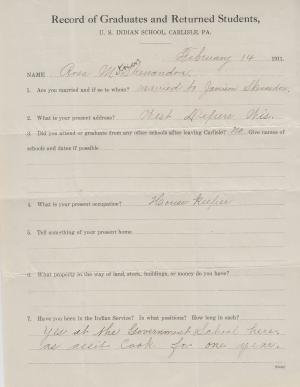 Record of Graduates and Returned Students,
U. S. INDIAN SCHOOL, CARLISLE, PA.
February 14 1911.
NAME Rosa Shenandoah
1. Are you married and if so to whom? married to Jamison Shenandoah
2. What is your present address? West Depere Wis.
3. Did you attend or graduate from any other schools after leaving Carlisle? No Give names of
schools and dates if possible
4. What is your present occupation? House Keeper
5. Tell something of your present home
6. What property in the way of land, stock, buildings, or money do you have?
7. Have you been in the Indian Service? In what positions? How long in each?
Yes at the Government School here
as assit Cook for one year.